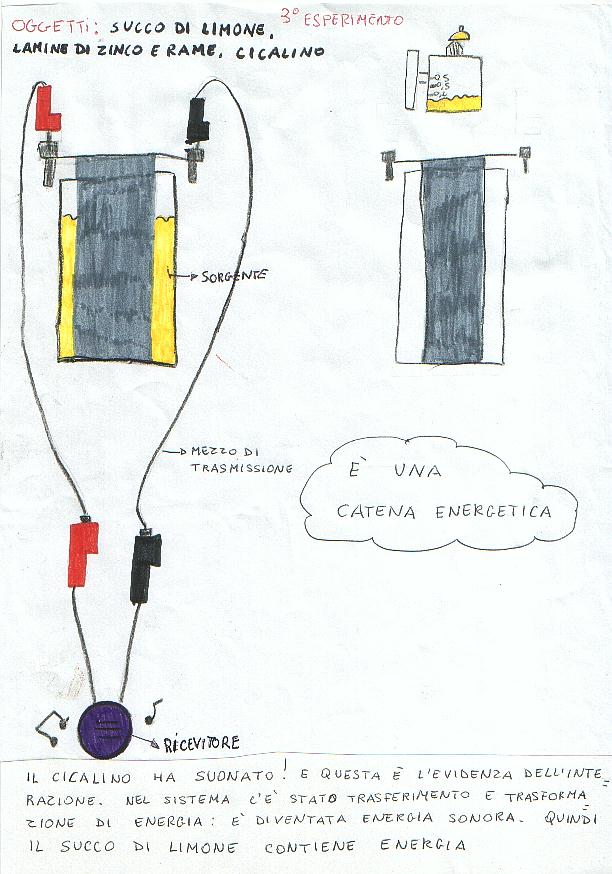 3° ESPERIMENTO
OGGETTI: SUCCO DI LIMONE,
LAMINE DI ZINCO E RAME, CICALINO
SORGENTE
MEZZO DI
TRASMISSIONE
È UNA
CATENA ENERGETICA
RICEVITORE
IL CICALINO HA SUONATO! E QUESTA È L'EVIDENZA DELL'INTE=
RAZIONE. NEL SISTEMA C'E' STATO TRASFERIMENTO E TRASFORMA
ZIONE DI ENERGIA: E' DIVENTATA ENERGIA SONORA. QUINDI
IL SUCCO DI LIMONE CONTIENE ENERGIA